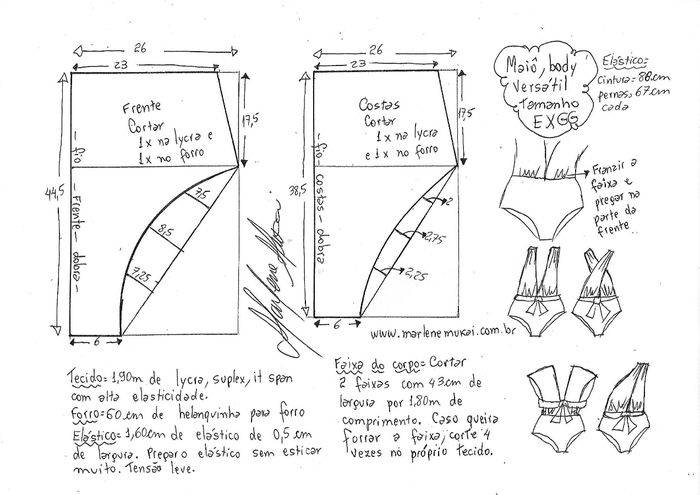 26
23
17,5
Frente
Cortar
1x na lycra e
1x no forro
fio - Frente - dobra -
44,5
7,5
8,5
7,25
6
26
23
17,5
Costas
Cortar
1x na lycra
e 1x no forro
fio - costas - dobra
38,5
2
2,75
2,25
6
Maiô, body
versátil
Tamanho
EXGG
Elástico=
cintura= 88cm
pernas= 67cm
cada
Franzir a
faixa e
pregar na
parte da
frente
www.marlenemukai.com.br
Tecido= 1,90m de lycra, suplex, it span
com alta elasticidade.
Forro= 60 cm de helanquinha para forro
Elástico= 1,60cm de elástico de 0,5 cm
de largura. Pregar o elástico sem esticar
muito. Tensão leve.
Faixa do corpo= Cortar
2 faixas com 43cm de
largura por 1,80m de
comprimento. Caso queira
forrar a faixa, corte 4
vezes no próprio tecido.